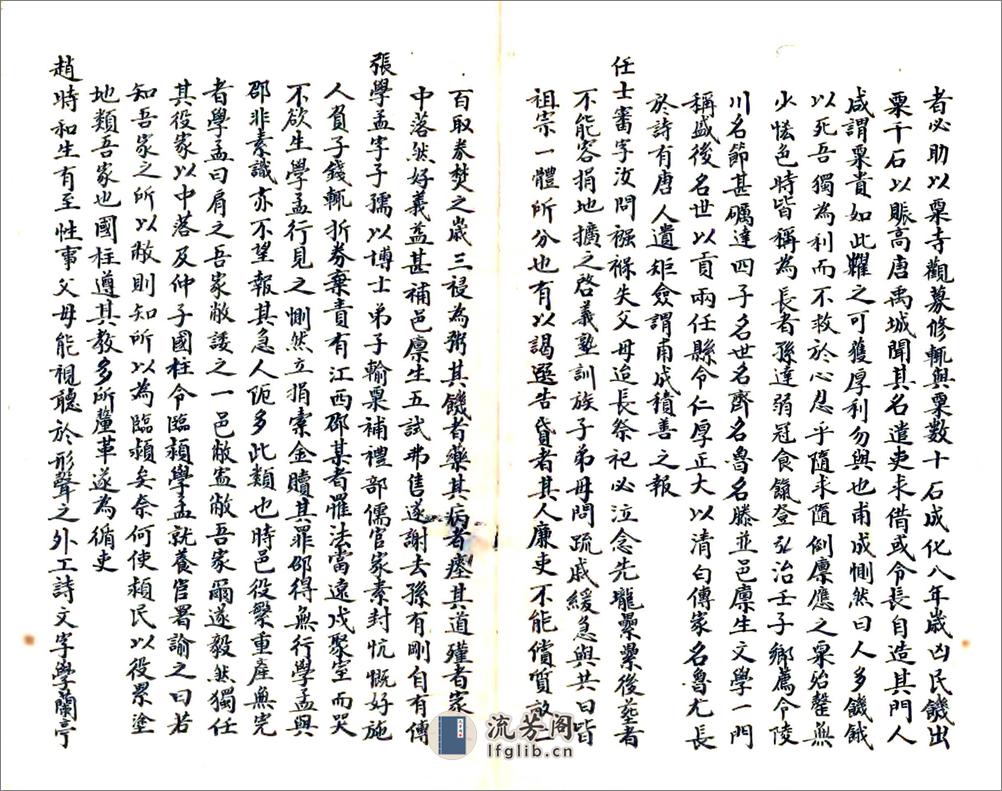 者必助以粟寺觀募修輒與粟數十石成化八年歲凶民饑出
粟千石以賑高唐禹城聞其名遣吏来借或令長自造其門人
咸謂粟貴如此糶之可獲厚利勿與也甫成惻然曰人多饑餓
以死吾獨為利而不救於心忍乎隨求隨倒廪應之粟殆罄無
少恡色時皆稱為長者孫達弱冠食餼登弘治壬子鄉薦令陵
川名節甚礪達四子名世名齊名魯名滕並邑廪生文學一門
稱盛後名世以貢兩任縣令仁厚正大以清白傳家名魯尤長
於詩有唐人遺矩僉謂甫成積善之報
任士審字汝問襁褓失父母迨長祭祀必泣念先壠纍纍後塟者
不能容捐地擴之啓義塾訓族子弟毋問疏戚緩急與共曰皆
祖宗一體所分也有以謁選告貸者其人廉吏不能償質敵二
百取券焚之歲三祲為粥其饑者藥其病者瘞其道殣者家
中落然好義益甚補邑廪生五試弗售遂謝去孫有剛自有傳
張學孟字子孺以博士弟子輸粟補禮部儒官家素封忼慨好施
人負子錢輒折券棄責有江西邵某者罹法當遠戍聚室而哭
不欲生學孟行見之惻然立捐橐金贖其罪邵得無行學孟與
邵非素識亦不望報其急人阨多此類也時邑役繁重産無完
者學孟曰肩之吾家敝諉之一邑敝寧敝吾家爾遂毅然獨任
其役家以中落及仲子國柱令臨潁學孟就養官署諭之曰若
知吾家之所以敝則知所以為臨潁矣奈何使潁民以役累塗
地類吾家也國柱遵其教多所釐革遂為循吏
趙時和生有至性事父母能視聽於形聲之外工詩文字學蘭亭
流芳阁
lfglib.cn